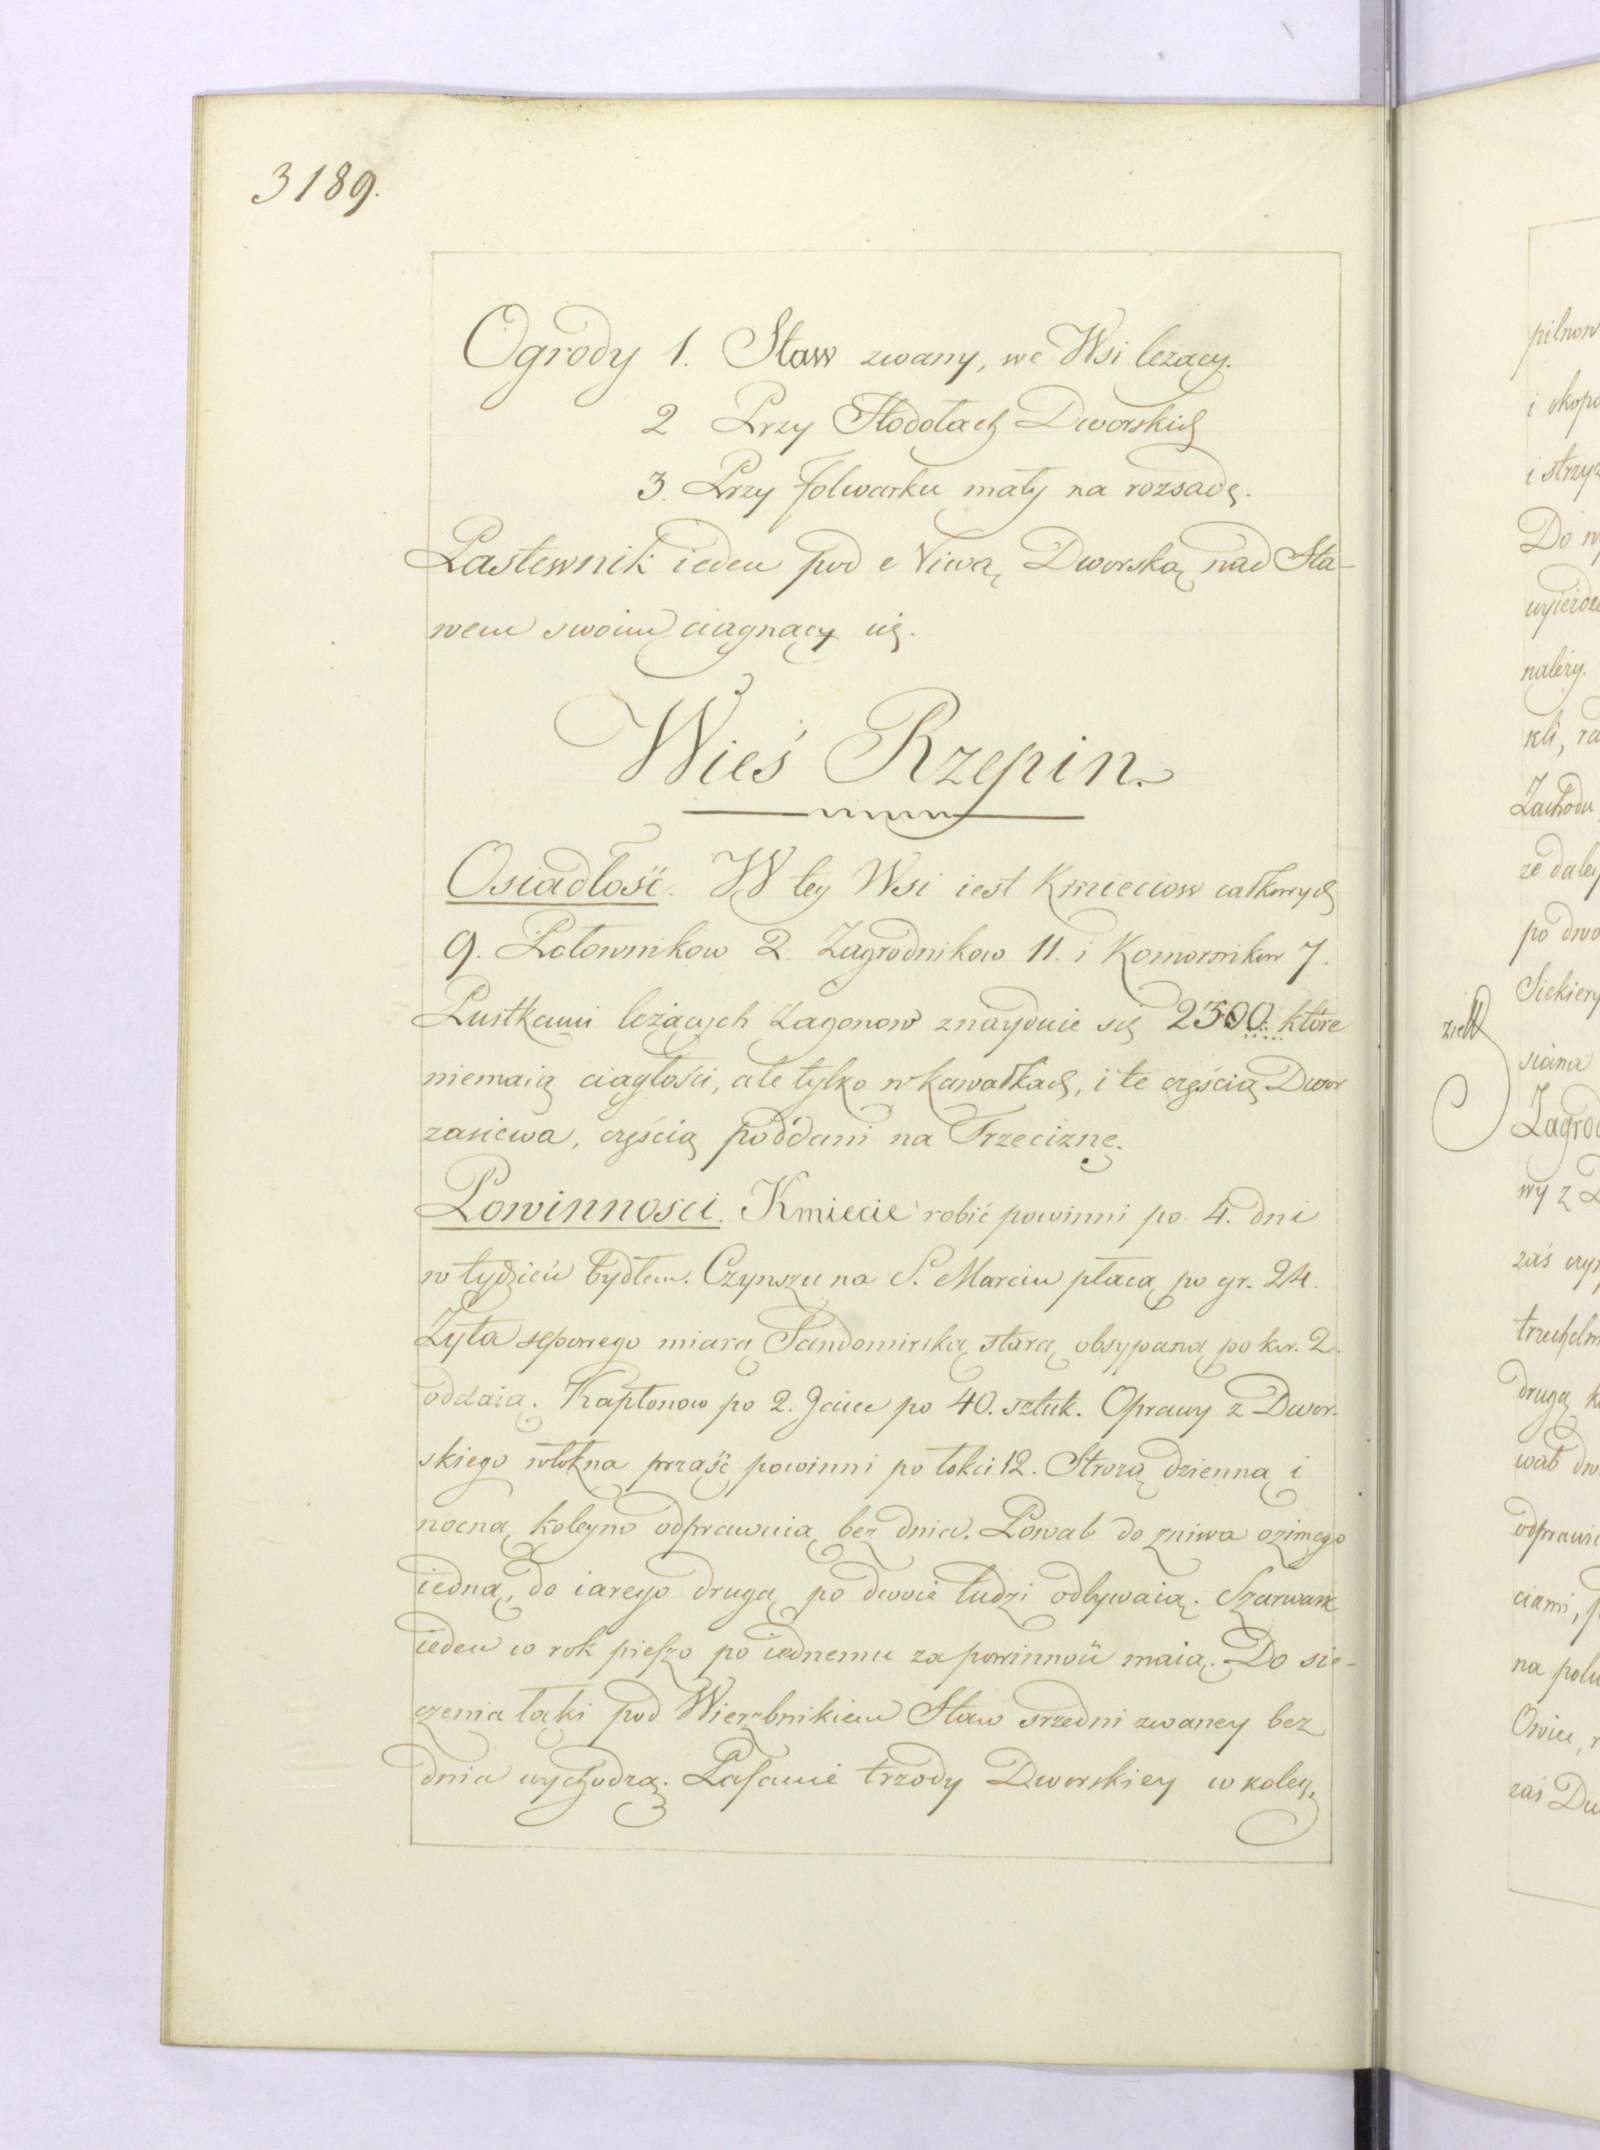 3189.
Ogrody 1. Staw zwany, we Wsi leżący.
2 Przy Stodołach Dworskich
3. Przy folwarku mały na rozsadę.
Pastewnik ieden pod Niwą Dworską nad Sta-
wem swoim ciągnący się.
Wieś Rzepin.
Osiadłość. W tey Wsi iest Kmieciow całkowych
9. Połownikow 2. Zagrodnikow 11. i Komornikow 7.
Pustkami leżących Zagonow znayduie się 2300. które
niemaią ciągłości, ale tylko w kawałkach, i te częścią Dwor
zasiewa, częścią poddani na Trzeciznę.
Powinnosci. Kmiecie robić powinni po 4. dni
w tydzień bydłem. Czynszu na S. Marcin płacą po gr. 24.
Żyta sepowego miarą Sandomirską starą obsypaną po kor. 2.
oddaią. Kapłonow po 2. Jaiec po 40. sztuk. Oprawy z Dwor-
skiego włokna prząść powinni po łokci 12. Strożą dzienną i
nocną koleyno odprawuią bez dnia. Powab do zniwa ozimego
iedną, do iarego drugą po dwoie ludzi odbywaią. Szarwark
ieden w rok pieszo po iednemu za powinność maią. Do sie-
czenia łąki pod Wierzbnikiem Staw srzedni zwaney bez
dnia wychodzą. Pasanie trzody Dworskiey w koley,
pilnow
i okopa
i strzyż
Do w
wyieżdz
należy.
kli, ra
Zachodu
ze daley
po dwo
Siekiery
siana
Zagrod
wy z D
zaś czyn
drugą k
wab dw
odprawi
ciami, p
na polu
Owiec, r
zaś Dw